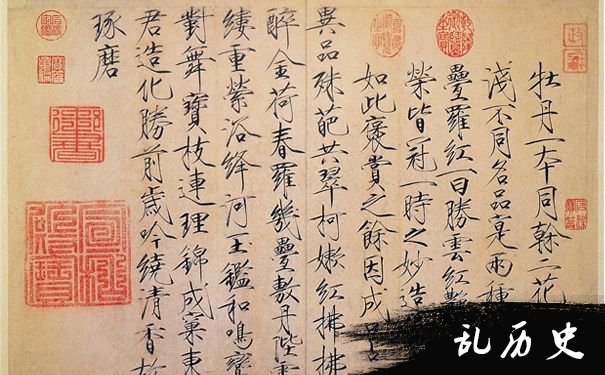 牡丹一本同幹二花
淺不同名品寔兩種
疊羅紅一曰勝雲紅艷
榮皆冠一時之妙造
如此褒賞之餘因成口占
異品殊葩共翠柯嫩紅拂拂
醉金荷春羅幾疊敷丹陛雲
縷重縈浴絳河玉鑑和鳴鸞
對舞寶枝連理錦成窠東
君造化勝前歲吟繞清香故
琢磨
乱历史